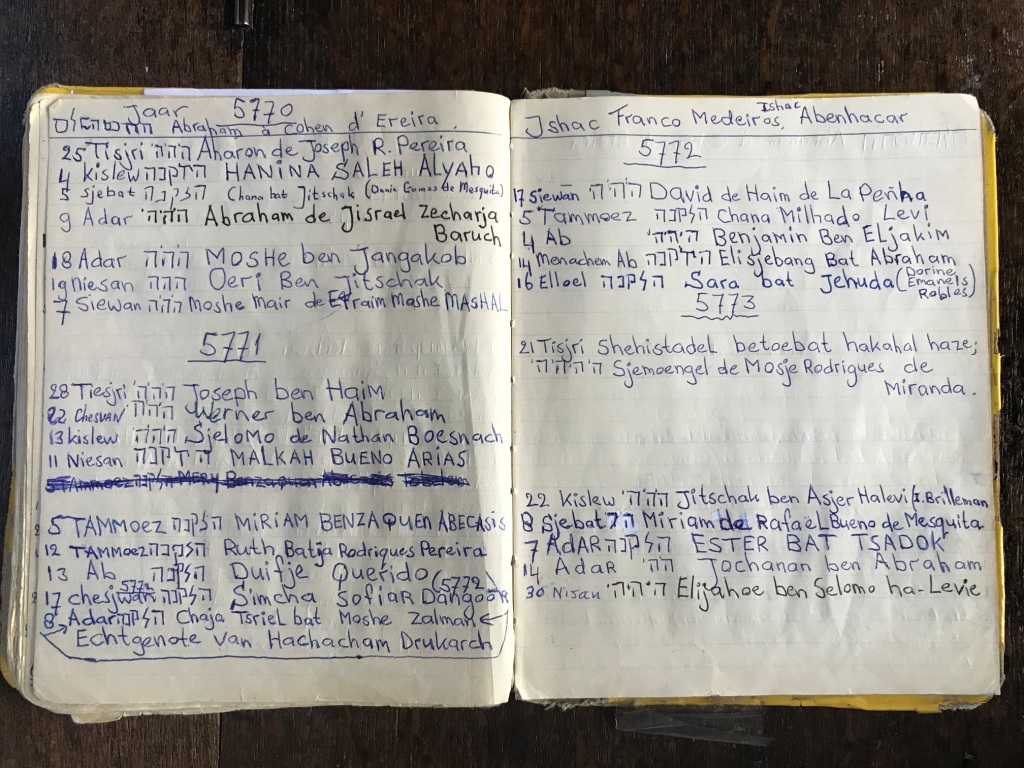 Jaar 5770
Abraham a Cohen d' Ereira.
25 Tisjri ההה' Aharon de Joseph R. Pereira
4 kislew הזקנה HANINA SALEH ALYAHO
5 Sjebat הזקנה Chana bat Jitschak (Dania Gomes de Mesquita)
9 Adar ההה' Abraham de Jisrael Zecharja
Baruch
18 Adar ההה MOSHe ben Jangakob
19 niesan ההה Oeri Ben Jitschak
7 Siewan ההה Moshe Mair de Efraim Moshe MASHAL
5771
28 Tiesjri ההה' Joseph ben Haim
22 CHesVAN ההה' Werner ben Abraham
13 kislew ההה SjeloMO de Nathan Boesnach
11 Niesan הזקנה MALKAH BUENO ARIAS
5 TAMMoez הזקנה MiRiAM BENZAQUEN ABECASIS
12 TAMMoez הזקנה Ruth Batja Rodrigues Pereira
13 Ab הזקנה Duifje Querido
17 chesjwan 5772 הזקנה Simcha Sofiar Dangoor (5772)
8 Adar הזקנה Chaja Tsriel bat Moshe Zalman
Echtgenote van Hachacham Drukarch
Jshac Franco Medeiros, Jshac Abenhacar
5772
17 Siewan ההה' David de Haim de La Peñha
5 Tammoez הזקנה Chana Milhado Levi
4 Ab ההה' Benjamin Ben Eljakim
14 Menachem Ab הזקנה Elisjebang Bat Abraham
16 Elloel הזקנה Sara bat Jehuda (Dorine Emanels Robles)
5773
21 Tisjri Shehistadel betoebat hakahal haze;
ההה' Sjemoengel de Mosje Rodrigues de
Miranda.
22 Kislew ההה' Jitschak ben Asjer Halevi (I. Brilleman
8 Sjebat הז Miriam de Rafaël Bueno de Mesquita
7 AdAR הזקנה ESTER BAT TSADOK
14 Adar הה' Jochanan ben Abraham
30 Nisan ההה' Elijahoe ben Selomo ha-Levie